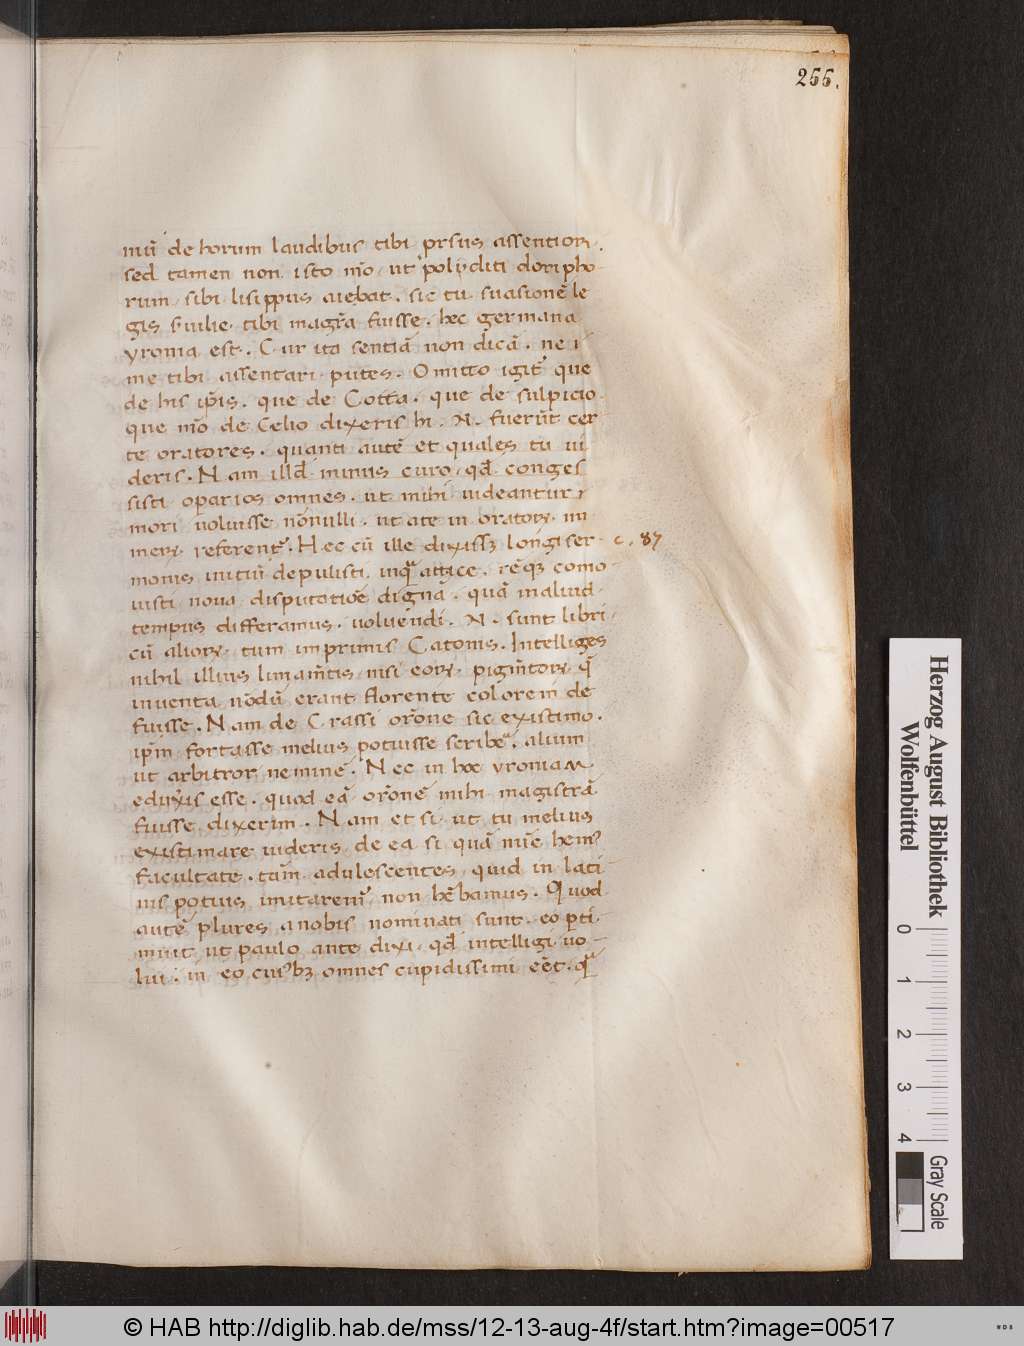 255.
mū de horum laudibus tibi prsus assentior.
sed tamen non isto mō. ut polycliti doripho
rum sibi lisippus aiebat. sic tu suasionē le
gis seruilie tibi magr̄a fuisse. hec germana
yronia est. Cur ita sentiā non dicā. ne
me tibi assentari putes. Omitto igit̄ que
de his ip̄is. que de Cotta. que de sulpicio
que mō de Celio dixeris hi. N. fuerūt cer
te oratores. quanti autē et quales tu ui
deris. Nam illd̄ minus curo qd̄ conges
sisti operarios omnes. ut mihi uideantur
mori uoluisse nōnulli. ut a te in oratorꝝ nu
merꝝ referent̄. Hec cū ille dixissꝫ longi ser
c. 87
monis initiū depulisti inquā attice. rēqꝫ como
uisti noua disputatiōe dignā. quā in aliud
tempus differamus. uoluendi. N. sunt libri
cū aliorꝝ tum imprimis Catonis. Intelliges
nihil illius liniam̄tis nisi eorꝝ pigm̄torꝝ q̄
inuenta nōdū erant florente colorem de
fuisse. Nam de Crassi orōne sic existimo.
ip̄m fortasse melius potuisse scribe. alium
ut arbitror neminē. Nec in hoc yroniam
eduxis esse. quod eā orōnē mihi magistrā
fuisse dixerim. Nam et si ut tu melius
existimare uideris de ea si quā nūc hem9
facultate. tam̄ adulescentes quid in lati
nis potius imitarem̄ non hēbamus. Quod
autē plures a nobis nominati sunt. eo perti
nuit ut paulo ante dixi qd̄ intelligi uo
lui. in eo cui9bꝫ omnes cupidissimi eēt. q̄
Herzog August Bibliothek
Wolfenbüttel
0 1 2 3 4
Gray Scale
© HAB http://diglib.hab.de/mss/12-13-aug-4f/start.htm?image=00517